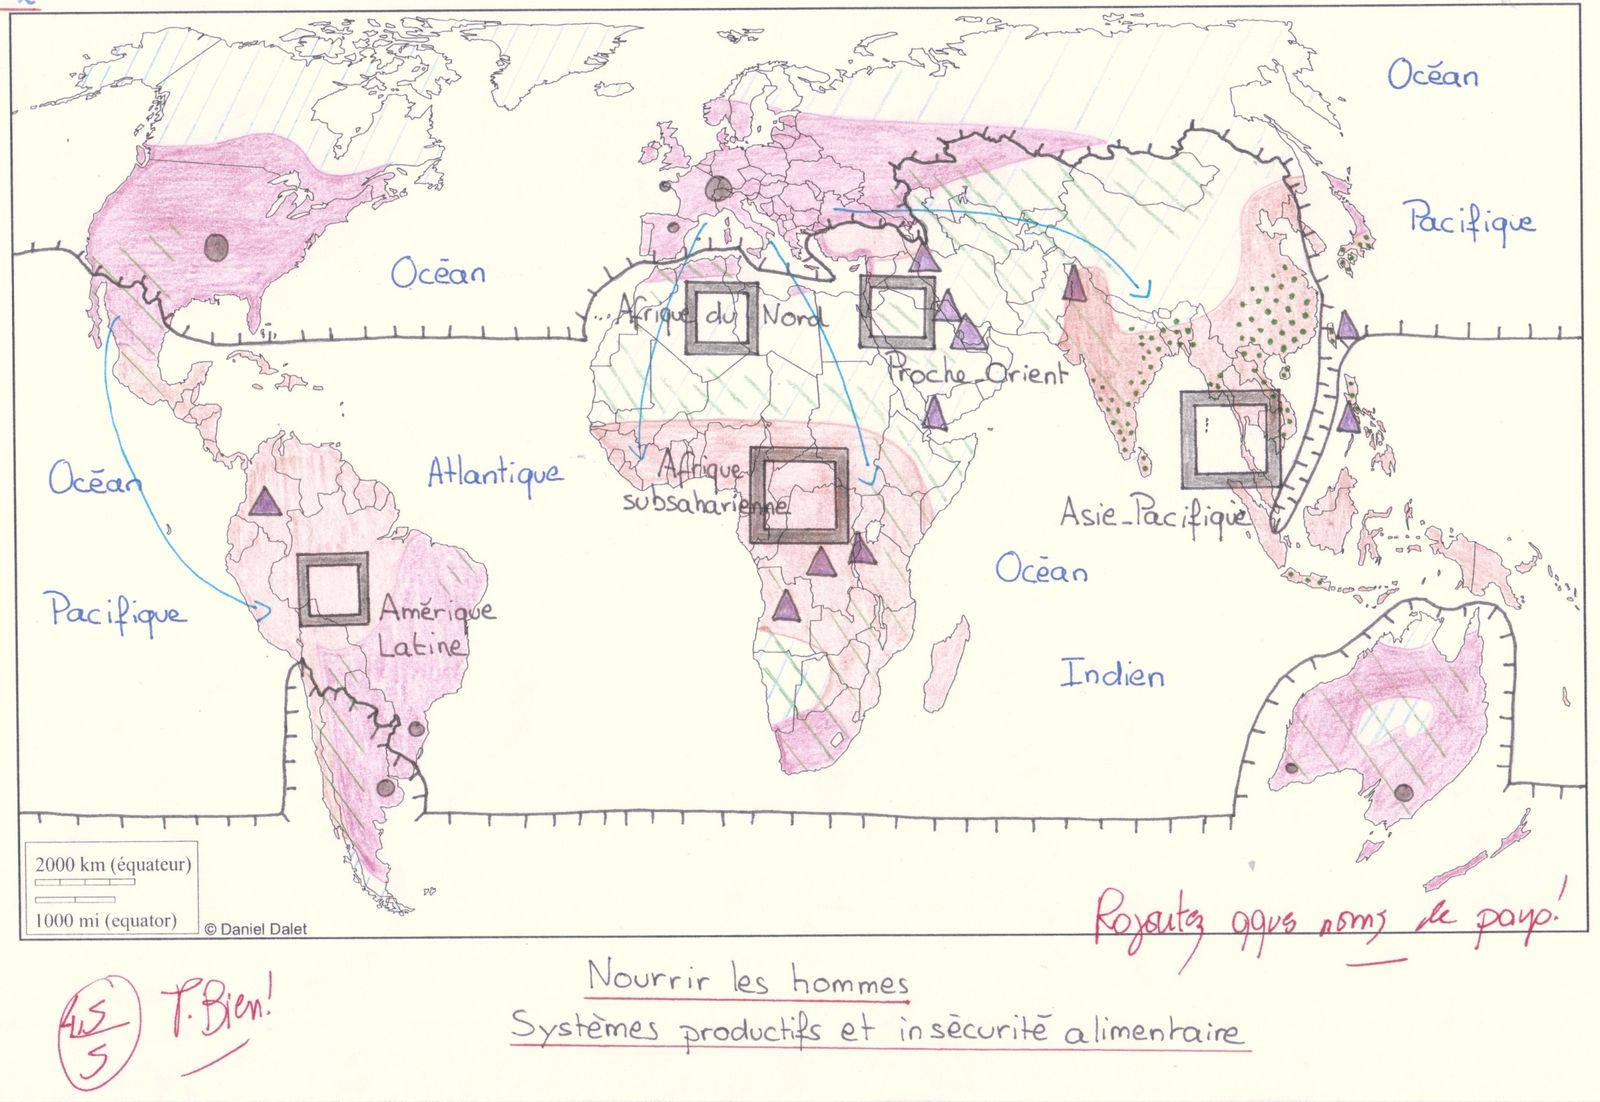 Océan
Pacifique
Océan
Afrique du Nord
Proche-Orient
Océan
Atlantique
Afrique
subsaharienne
Asie-Pacifique
Océan
Pacifique
Amérique
Latine
Indien
2000 km (équateur)
1000 mi (equator)
© Daniel Dalet
Rajoutez qques noms de pays!
Nourrir les hommes
Systèmes productifs et insécurité alimentaire
4,5
5
T. Bien!
Océan